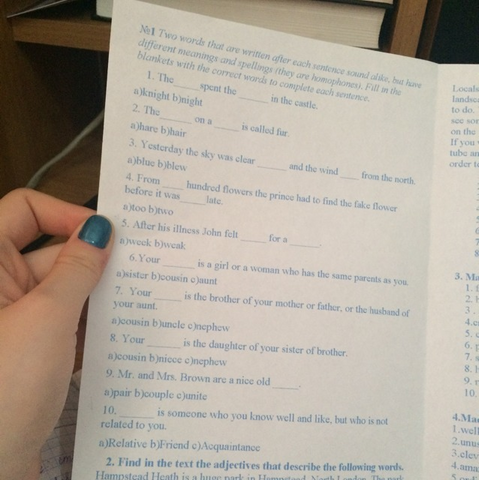 №1 Two words that are written after each sentence sound alike, but have
different meanings and spellings (they are homophones). Fill in the
blankets with the correct words to complete each sentence.
1. The_____ spent the _____ in the castle.
a)knight b)night
2. The_____ on a _____ is called fur.
a)hare b)hair
3. Yesterday the sky was clear _____ and the wind ____ from the north.
a)blue b)blew
4. From_____ hundred flowers the prince had to find the fake flower
before it was_____ late.
a)too b)two
5. After his illness John felt _____ for a _____.
a)week b)weak
6.Your _____ is a girl or a woman who has the same parents as you.
a)sister b)cousin c)aunt
7. Your _____ is the brother of your mother or father, or the husband of
your aunt.
a)cousin b)uncle c)nephew
8. Your _____ is the daughter of your sister of brother.
a)cousin b)niece c)nephew
9. Mr. and Mrs. Brown are a nice old _____.
a)pair b)couple c)unite
10. ______ is someone who you know well and like, but who is not
related to you.
a)Relative b)Friend c)Acquaintance
2. Find in the text the adjectives that describe the following words.
Hampstead Heath is a huge park in Hampstead, North London. The park
Locals
to do.
see
on the
If you
order
3. Ma
1.
2.
3.
4.
5.
6.
7.
8.
9.
10.
4.Ma
1.well
2.unus
3.clev
4.ama